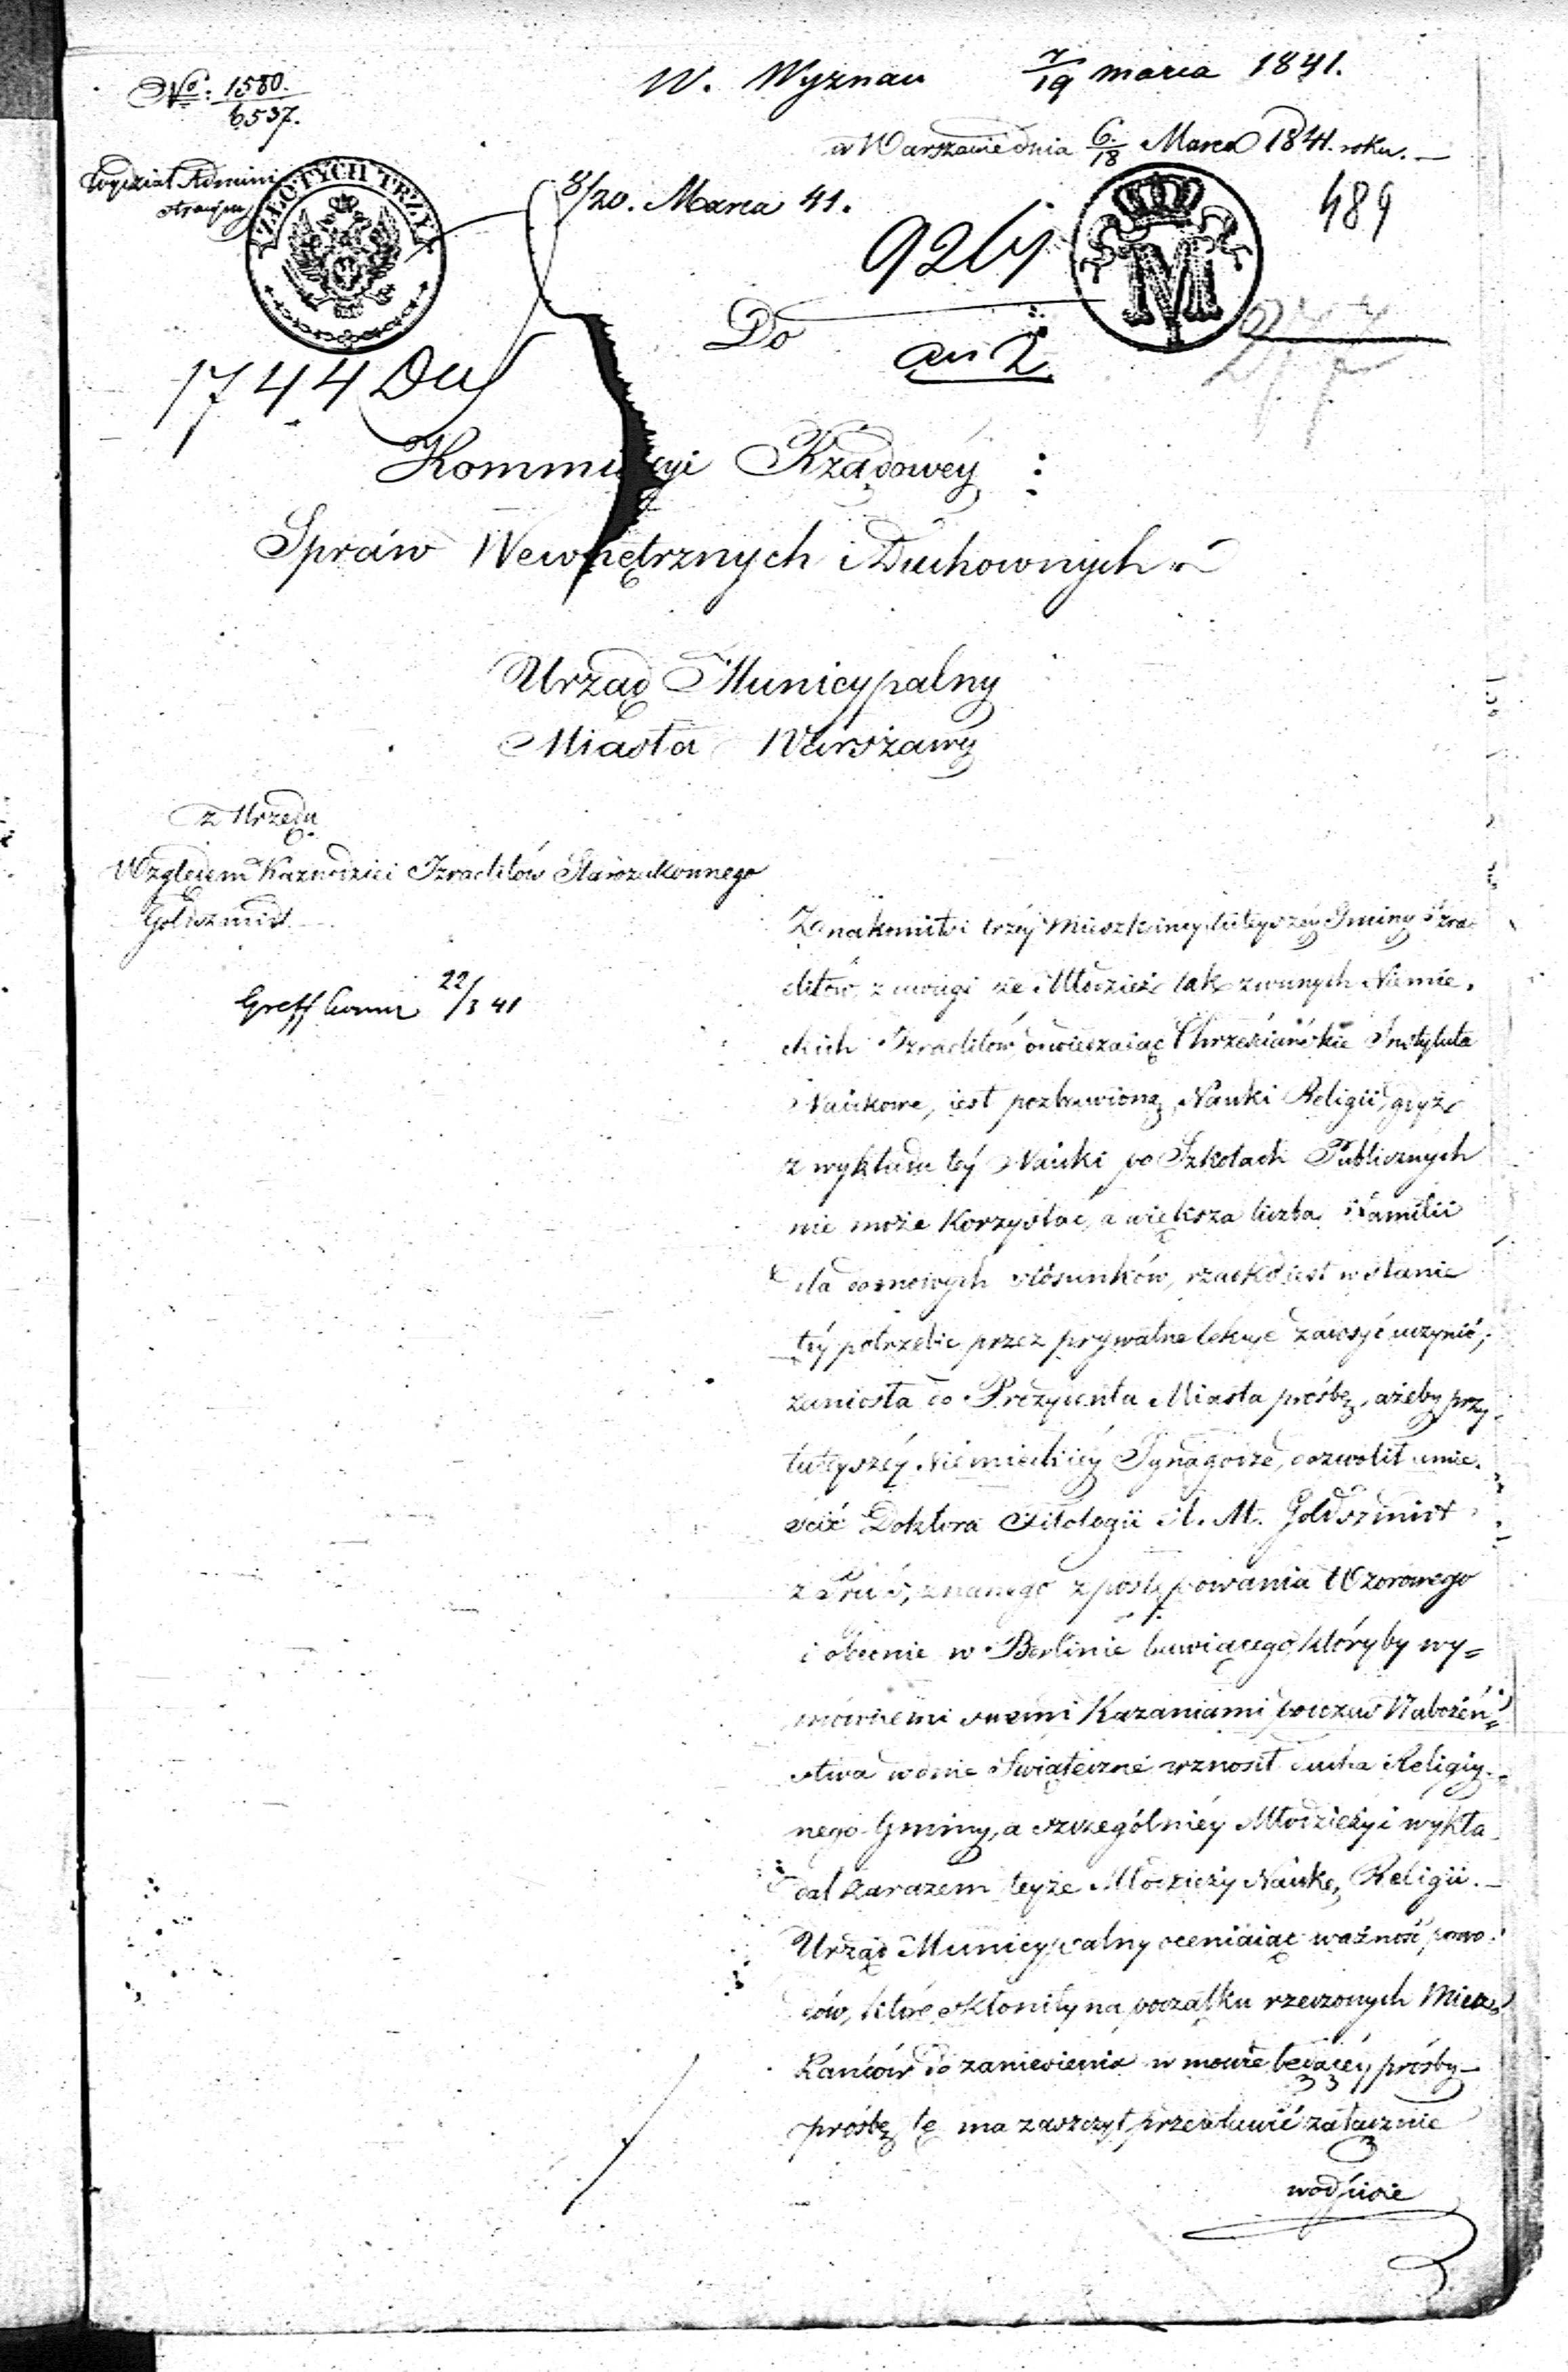 No: 1580.
6537.
W. Wyznań 7/19 marca 1841.
w Warszawie dnia 6/18 Marca 1841. roku.
Wydział Admini
stracyjny
ZŁOTYCH TRZY
8/20. Marca 41.
489
M
Do
1744
Kommissyi Rządowéy
Spraw Wewnętrznych i Duchownych
Urząd Municypalny
Miasta Warszawy
z Urzędu
Względem Kaznodziei Izraelitów Starozakonnego
Goldszmidt
22/3 41
Znakomitsi trzéj Mieszkańcy tutejszéy Gminy Izra-
elitów, z uwagi że Młodzież tak zwanych Niemie-
ckich Izraelitów odwiedzaiąc Chrześciańskie Instytuta
Naukowe, iest pozbawioną Nauki Religii, gdyż
z wykładu téy Nauki po Szkołach Publicznych
nie może korzystać, a większa liczba Familii
dla domowych stósunków, rzadko iest w stanie
téy potrzebie przez prywatne lekcye zadosyć uczynić,
zaniosła do Prezydenta Miasta prośbę, ażeby przy
tuteyszéy Niemieckiéy Synagodze, dozwolił umie-
ścić Doktora Filologii A. M. Goldszmidt
z Prus, znanego z postępowania Wzorowego
i obecnie w Berlinie bawiącego, któryby wy=
mównemi swemi Kazaniami podczas Nabożeń=
stwa w dnie Świąteczne wznosił ducha Religiy-
nego Gminy, a szczególniéy Młodzieży i wykła-
dał zarazem teyże Młodzieży Naukę Religii.
Urząd Municypalny oceniaiąc ważność powo-
dów, które skłoniły na początku rzeczonych Miesz-
kańców do zaniesienia w mowie będącéy prośby
prośbę tę ma zaszczyt przedstawić załącznie